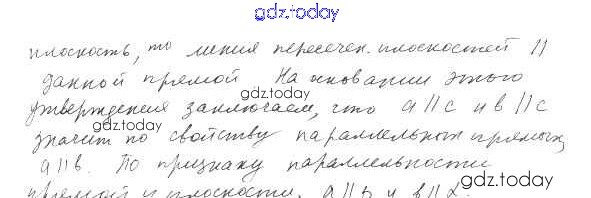 gdz.today
плоскость, то линия пересечен. плоскостей ||
данной прямой На основании этого
gdz.today
утверждения заключаем, что a || c и b || c
gdz.today
значит по свойству параллельных прямых,
a || b. По признаку параллельности
gdz.today
прямой и плоскости. a || b и b || α.